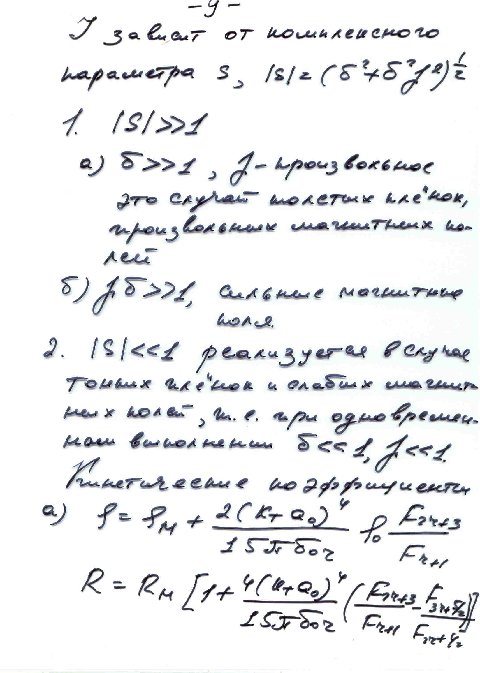 - 9 -
I зависит от комплексного
параметра s, |s| = (б² + б²j²)^½
1. |S| >> 1
а) б >> 1, j - произвольное
это случай толстых плёнок,
произвольных магнитных по-
лей
б) jб >> 1, сильные магнитные
поля.
2. |S| << 1 реализуется в случае
тонких плёнок и слабых магнит-
ных полей, т.е. при одновремен-
ном выполнении б << 1, j << 1.
Кинетические коэффициенты
а) ρ = ρ_M + 2(k+a₀)⁴ / 15πб₀r ρ₀ F_{2r+3} / F_{r+1}
R = R_M [1 + 4(k+a₀)⁴ / 15πб₀r (F_{2r+3} / F_{r+1} - F_{3r+½} / F_{2r+½})]